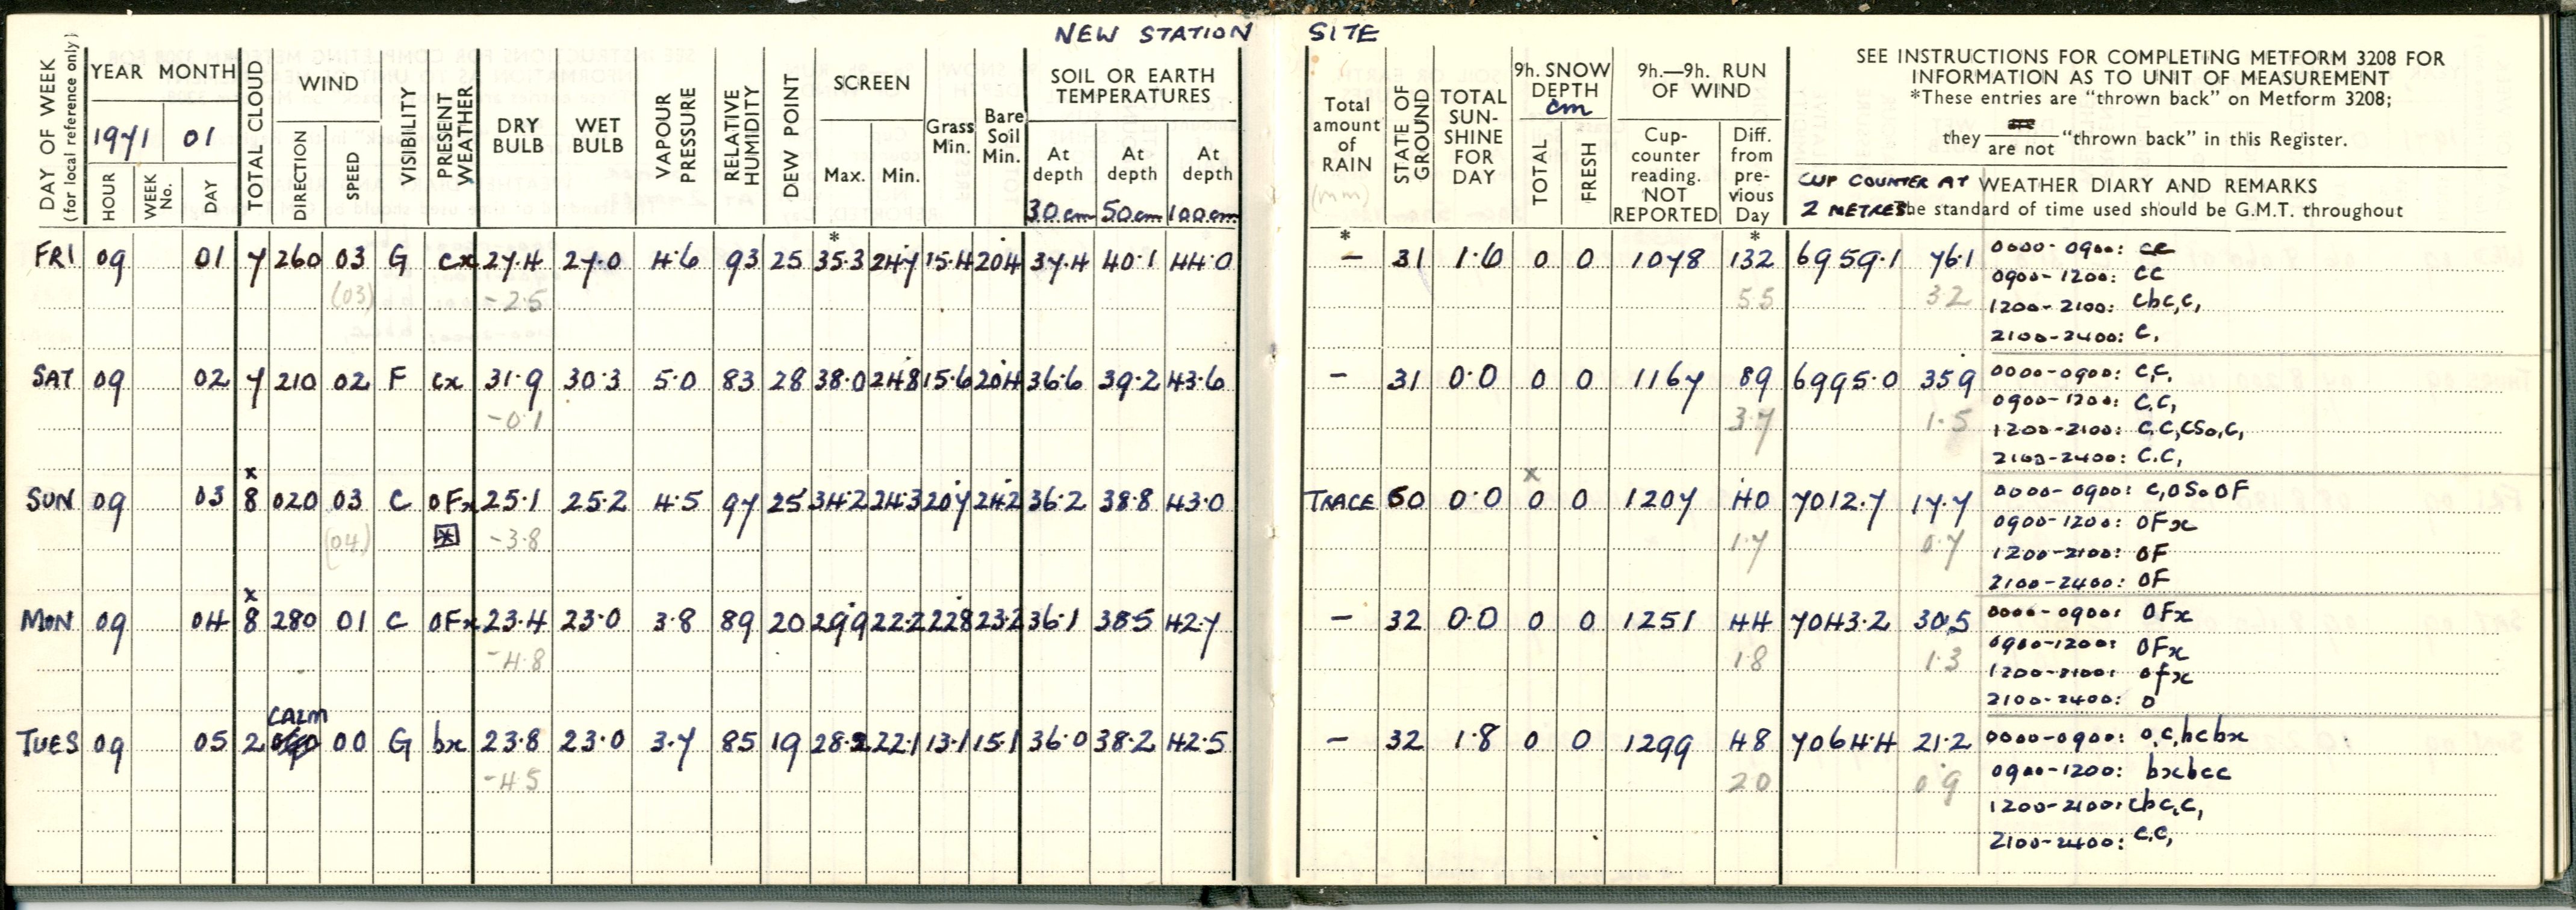 NEW STATION SITE
DAY OF WEEK (for local reference only)
YEAR MONTH
1971 01
HOUR WEEK No. DAY
TOTAL CLOUD
WIND
DIRECTION SPEED
VISIBILITY
PRESENT WEATHER
DRY BULB
WET BULB
VAPOUR PRESSURE
RELATIVE HUMIDITY
DEW POINT
SCREEN
Max. Min.
Grass Min.
Bare Soil Min.
SOIL OR EARTH TEMPERATURES
At depth 30 cm
At depth 50 cm
At depth 100 cm
Total amount of RAIN (mm)
STATE OF GROUND
TOTAL SUN-SHINE FOR DAY
9h. SNOW DEPTH cm
TOTAL FRESH
9h.—9h. RUN OF WIND
Cup-counter reading. NOT REPORTED
Diff. from pre-vious Day
SEE INSTRUCTIONS FOR COMPLETING METFORM 3208 FOR
INFORMATION AS TO UNIT OF MEASUREMENT
*These entries are "thrown back" on Metform 3208;
they are / are not "thrown back" in this Register.
CUP COUNTER AT 2 METRES
WEATHER DIARY AND REMARKS
The standard of time used should be G.M.T. throughout
* * *
FRI 09 01 7 260 03 G cx 27.4 27.0 4.6 93 25 35.3 24.7 15.4 20.4 37.4 40.1 44.0 – 31 1.6 0 0 1078 132 6959.1 76.1 0000-0900: cc
(03) -2.5 5.5 3.2 0900-1200: CC
1200-2100: cbc,c,
2100-2400: C,
SAT 09 02 7 210 02 F cx 31.9 30.3 5.0 83 28 38.0 24.8 15.6 20.4 36.6 39.2 43.6 – 31 0.0 0 0 1167 89 6995.0 35.9 0000-0900: c,c,
-0.1 3.7 1.5 0900-1200: C,C,
1200-2100: C,C,CSo,C,
2100-2400: C.C,
x x
SUN 09 03 8 020 03 C OFx 25.1 25.2 4.5 97 25 34.2 24.3 20.7 24.2 36.2 38.8 43.0 TRACE 50 0.0 0 0 1207 40 7012.7 17.7 0000-0900: C,OSo OF
(04) -3.8 1.7 0.7 0900-1200: OFx
1200-2100: OF
2100-2400: OF
x
MON 09 04 8 280 01 C OFx 23.4 23.0 3.8 89 20 29.9 22.2 22.8 23.2 36.1 38.5 42.7 – 32 0.0 0 0 1251 44 7043.2 30.5 0000-0900: OFx
-4.8 1.8 1.3 0900-1200: OFx
1200-2100: Ofx
2100-2400: O
CALM
TUES 09 05 2 00 G bx 23.8 23.0 3.7 85 19 28.2 22.1 13.1 15.1 36.0 38.2 42.5 – 32 1.8 0 0 1299 48 7064.4 21.2 0000-0900: O,C,bcbx
-4.5 2.0 0.9 0900-1200: bxbcc
1200-2100: cbc,c,
2100-2400: C,C,